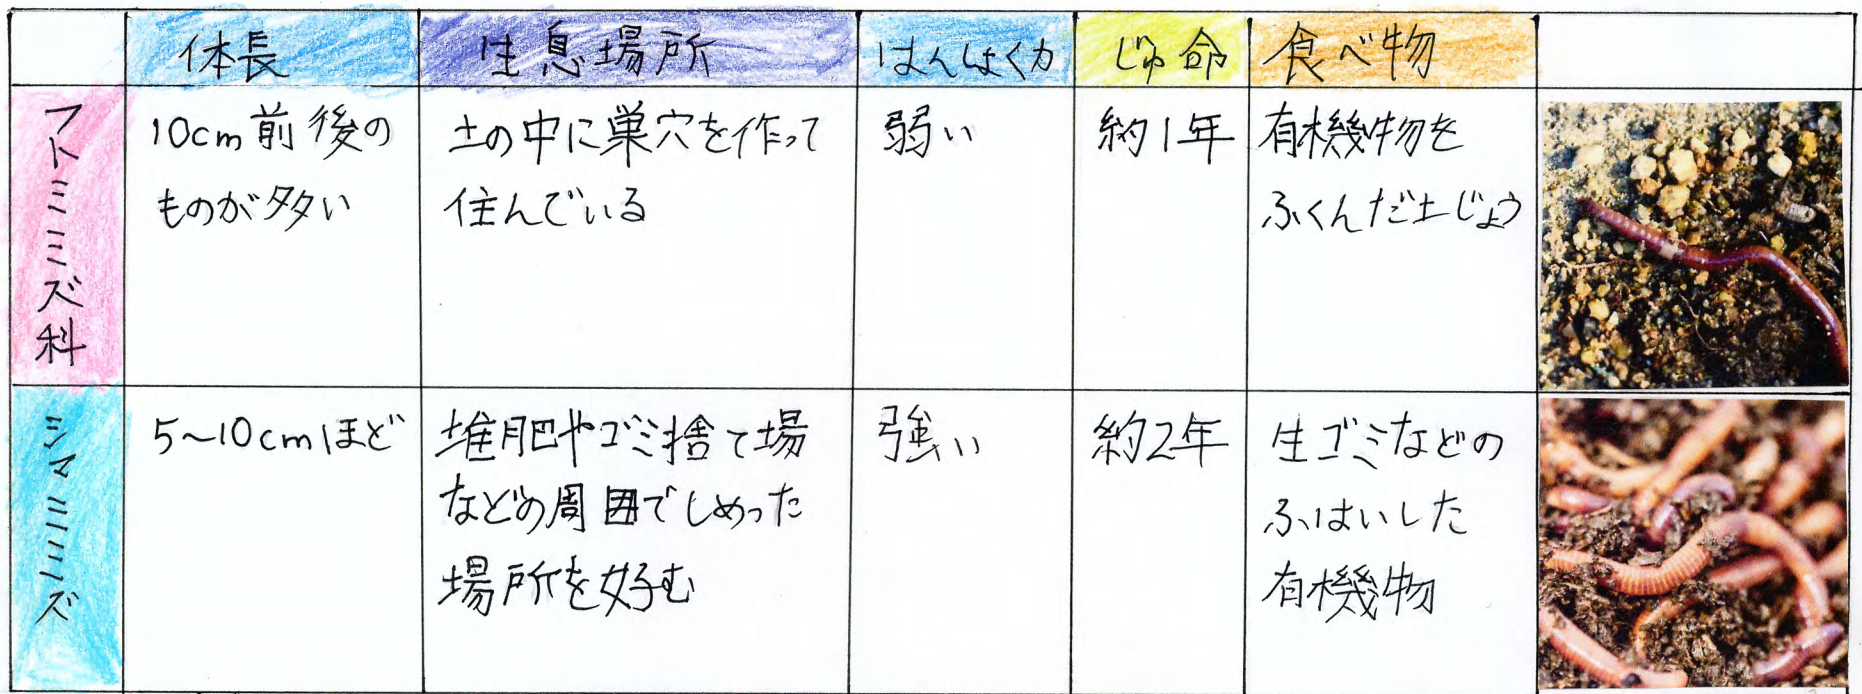 体長
生息場所
はんしょく力
じゅ命
食べ物
フトミミズ科
10cm前後の
ものが多い
土の中に巣穴を作って
住んでいる
弱い
約1年
有機物を
ふくんだ土じょう
シマミミズ
5~10cmほど
堆肥やゴミ捨て場
などの周囲でしめった
場所を好む
強い
約2年
生ゴミなどの
ふはいした
有機物